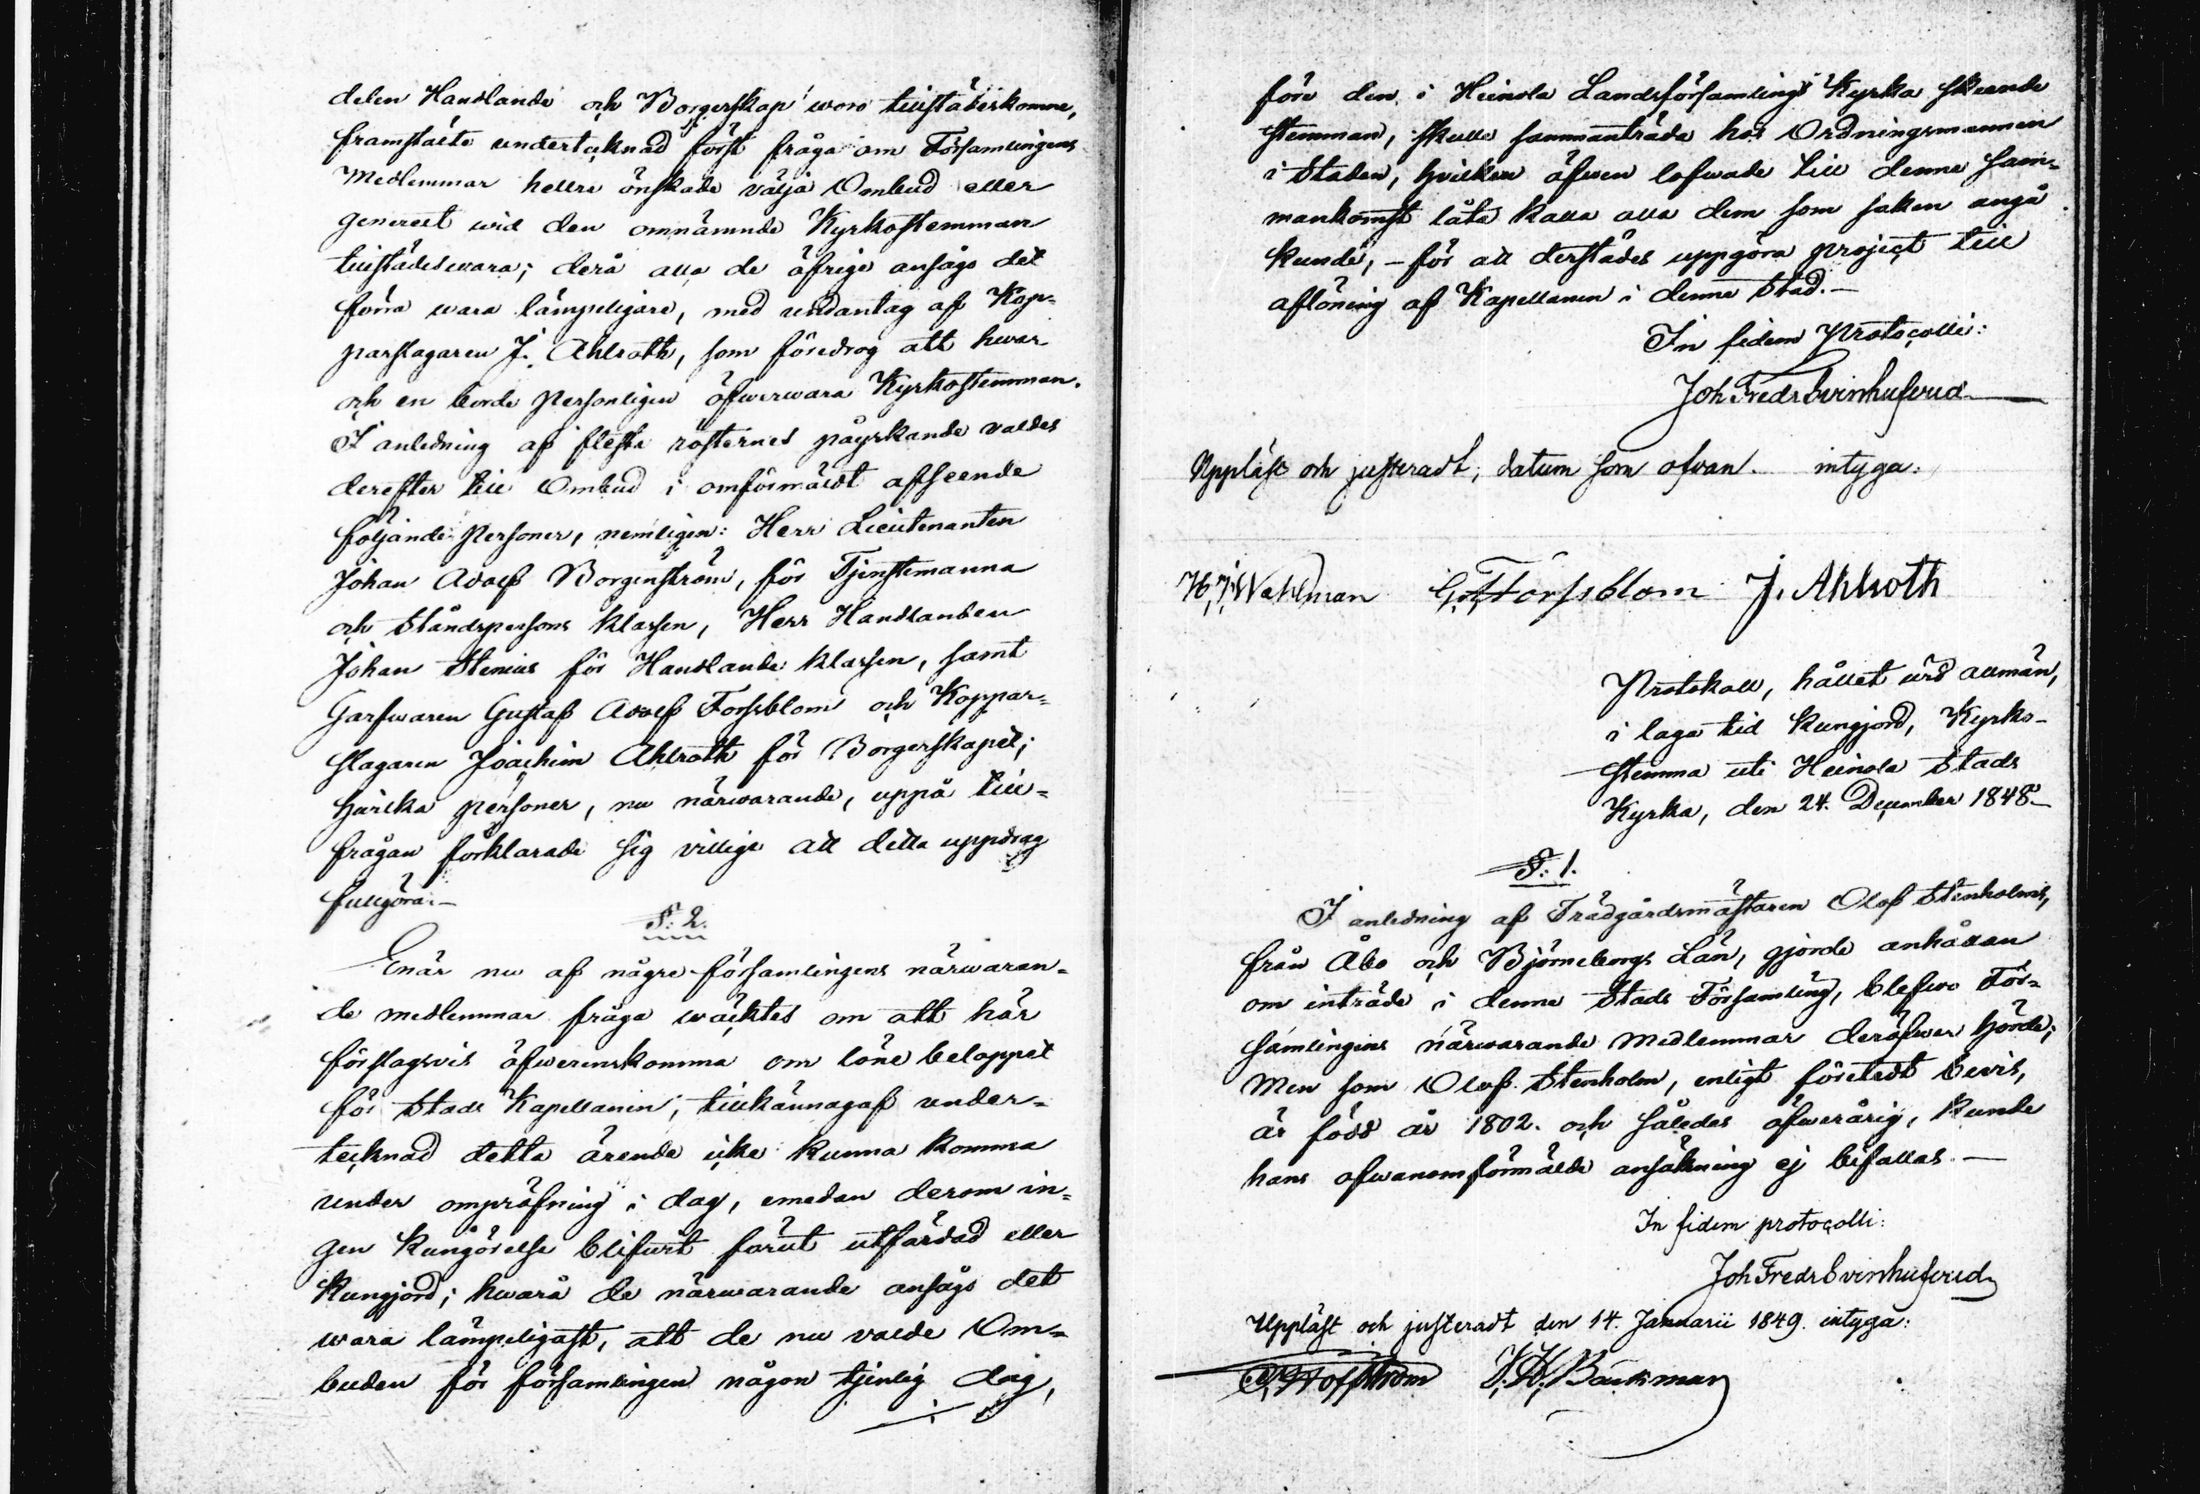 delen Handlande och Borgerskap woro tillstädeskomne,
framställte undertecknad först fråga om Församlingens
Medlemmar hellre önskade välja Ombud eller
generelt wid den omnämnde Kyrkostemman
tillstädeswara; derå alla de öfrige ansågo det
förra wara lämpeligare, med undantag af Kop-
parslagaren J. Ahlroth, som föredrog att hwar
och en borde personligen öfwerwara Kyrkostemman.
I anledning af flesta rösternes påyrkande valdes
derefter till Ombud i omförmäldt afseende
följande personer, nemligen: Herr Lieutenanten
Johan Adolf Borgenström, för Tjenstemanna
och Ståndspersons klassen, Herr Handlanden
Johan Stenius för Handlande klassen, samt
Garfwaren Gustaf Adolf Forssblom och Koppar-
slagaren Joachim Ahlroth för Borgerskapet;
hwilka personer, nu närwarande, uppå till-
frågan förklarade sig villige att detta uppdrag
fullgöra.—
§. 2.
Enär nu af någre församlingens närwaran-
de medlemmar fråga wäcktes om att här
förslagsvis öfwerenskomma om löne beloppet
för Stads Kapellanen, tillkännagaf under-
tecknad detta ärende icke kunna komma
under ompröfning i dag, emedan derom in-
gen kungörelse blifwit förut utfärdad eller
kungjord; hwarå de närwarande ansågo det
wara lämpeligast, att de nu valde Om-
buden för församlingen någon tjenlig dag,
före den i Heinola Landsförsamlings Kyrka skeende
stemman, skulle sammanträda hos Ordningsmannen
i Staden, hvilken äfwen lofwade till denna sam-
mankomst låta kalla alla dem som saken angå
kunde, – för att derstädes uppgöra project till
aflöning af Kapellanen i denna Stad.—
In fidem Protocolli:
Joh Fredr Svinhufvud
Uppläst och justeradt, datum som ofvan. intyga:
H. J. Wahlman G. A. Forssblom J. Ahlroth
Protokoll, hållet wid allmän,
i laga tid kungjord, Kyrko-
stemma uti Heinola Stads
Kyrka, den 24. December 1848.—
§. 1.
I anledning af Trädgårdsmästaren Olof Stenholms,
från Åbo och Björneborgs Län, gjorde anhållan
om inträde i denne Stads Församling, blefwo För-
samlingens närwarande medlemmar deröfwer hörde;
Men som Olof Stenholm, enligt företedt bevis,
är född år 1802. och således öfwerårig, kunde
hans ofwanomförmälde ansökning ej bifallas.—
In fidem protocolli:
Joh Fredr Svinhufvud
Uppläst och justeradt den 14. Januarii 1849. intyga:
Hoffström J. H. Bäckman